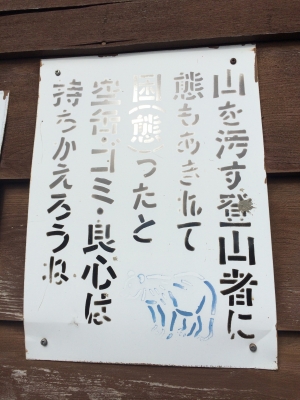 山を汚す登山者に
態もあきれて
困(態)つたと
空缶・ゴミ・良心は
持ちかえろうね